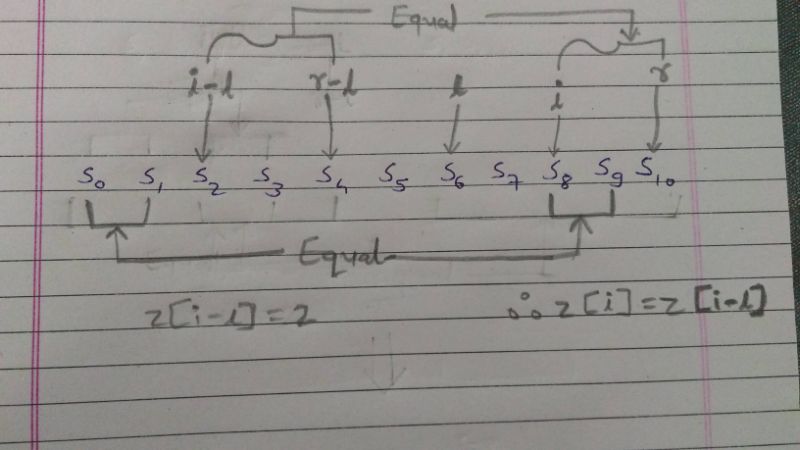 Equal
i-l r-l l i r
S₀ S₁ S₂ S₃ S₄ S₅ S₆ S₇ S₈ S₉ S₁₀
Equal
z[i-l]=2 ∴ z[i]=z[i-l]